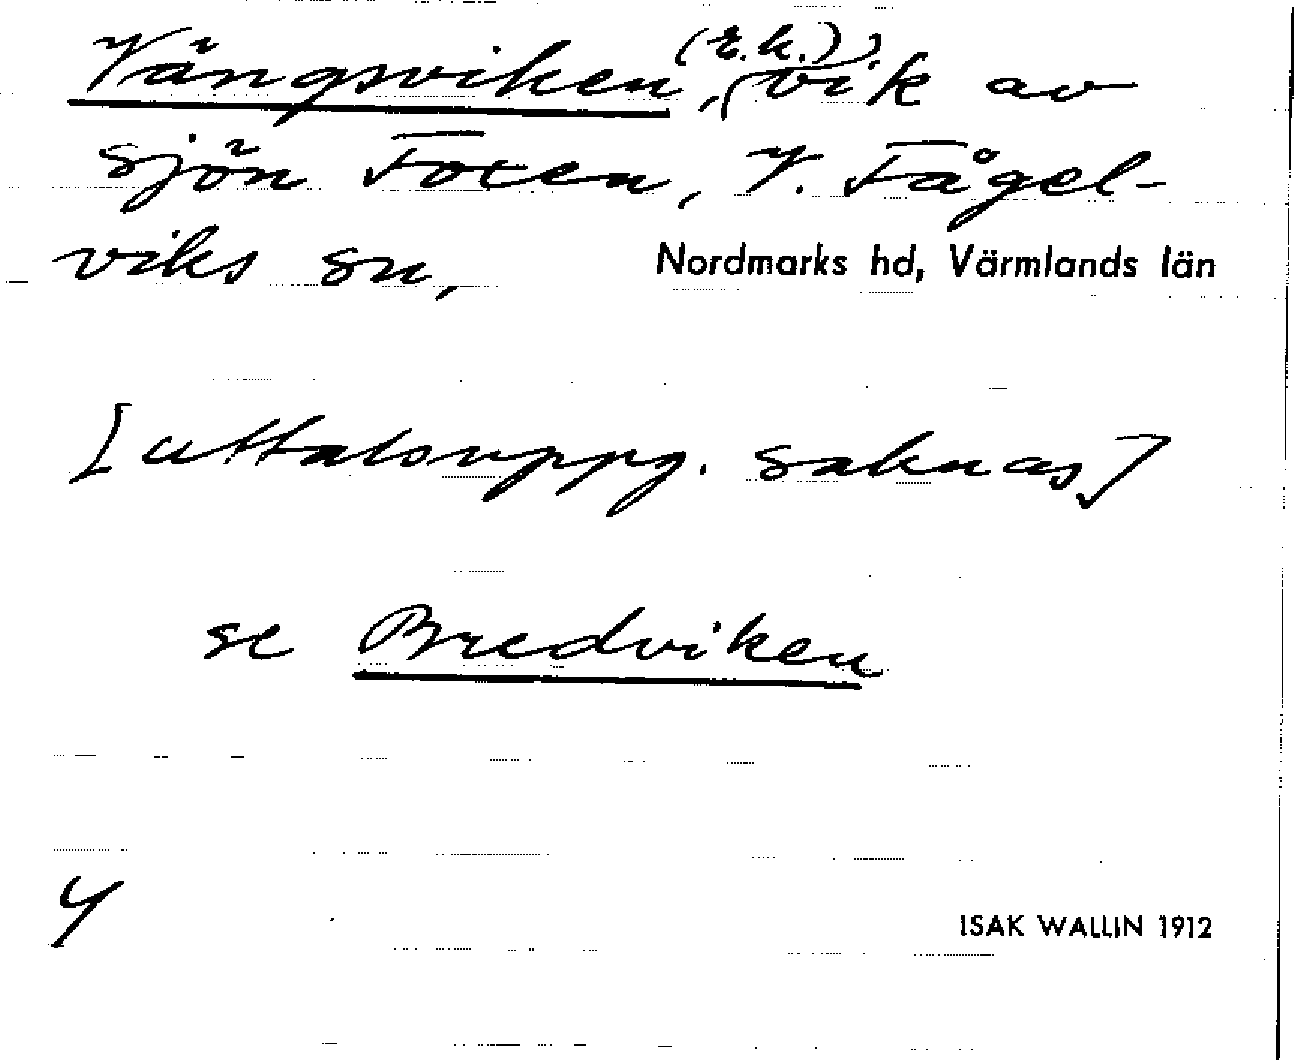 Vängsviken (E.k.), vik av
sjön Foxen, V. Fågel-
viks sn, Nordmarks hd, Värmlands län
[uttalsuppg. saknas]
se Bredviken
Y
ISAK WALLIN 1912